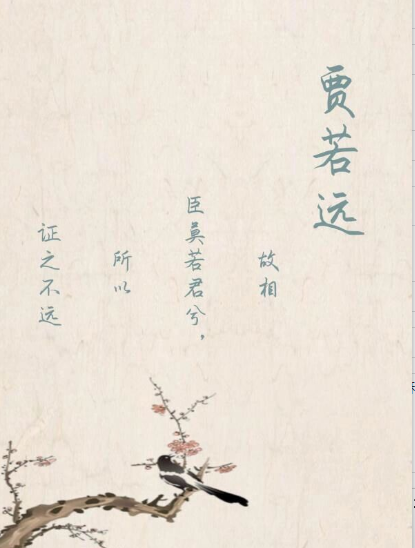 贾若远
故相
臣莫若君兮，
所以
证之不远